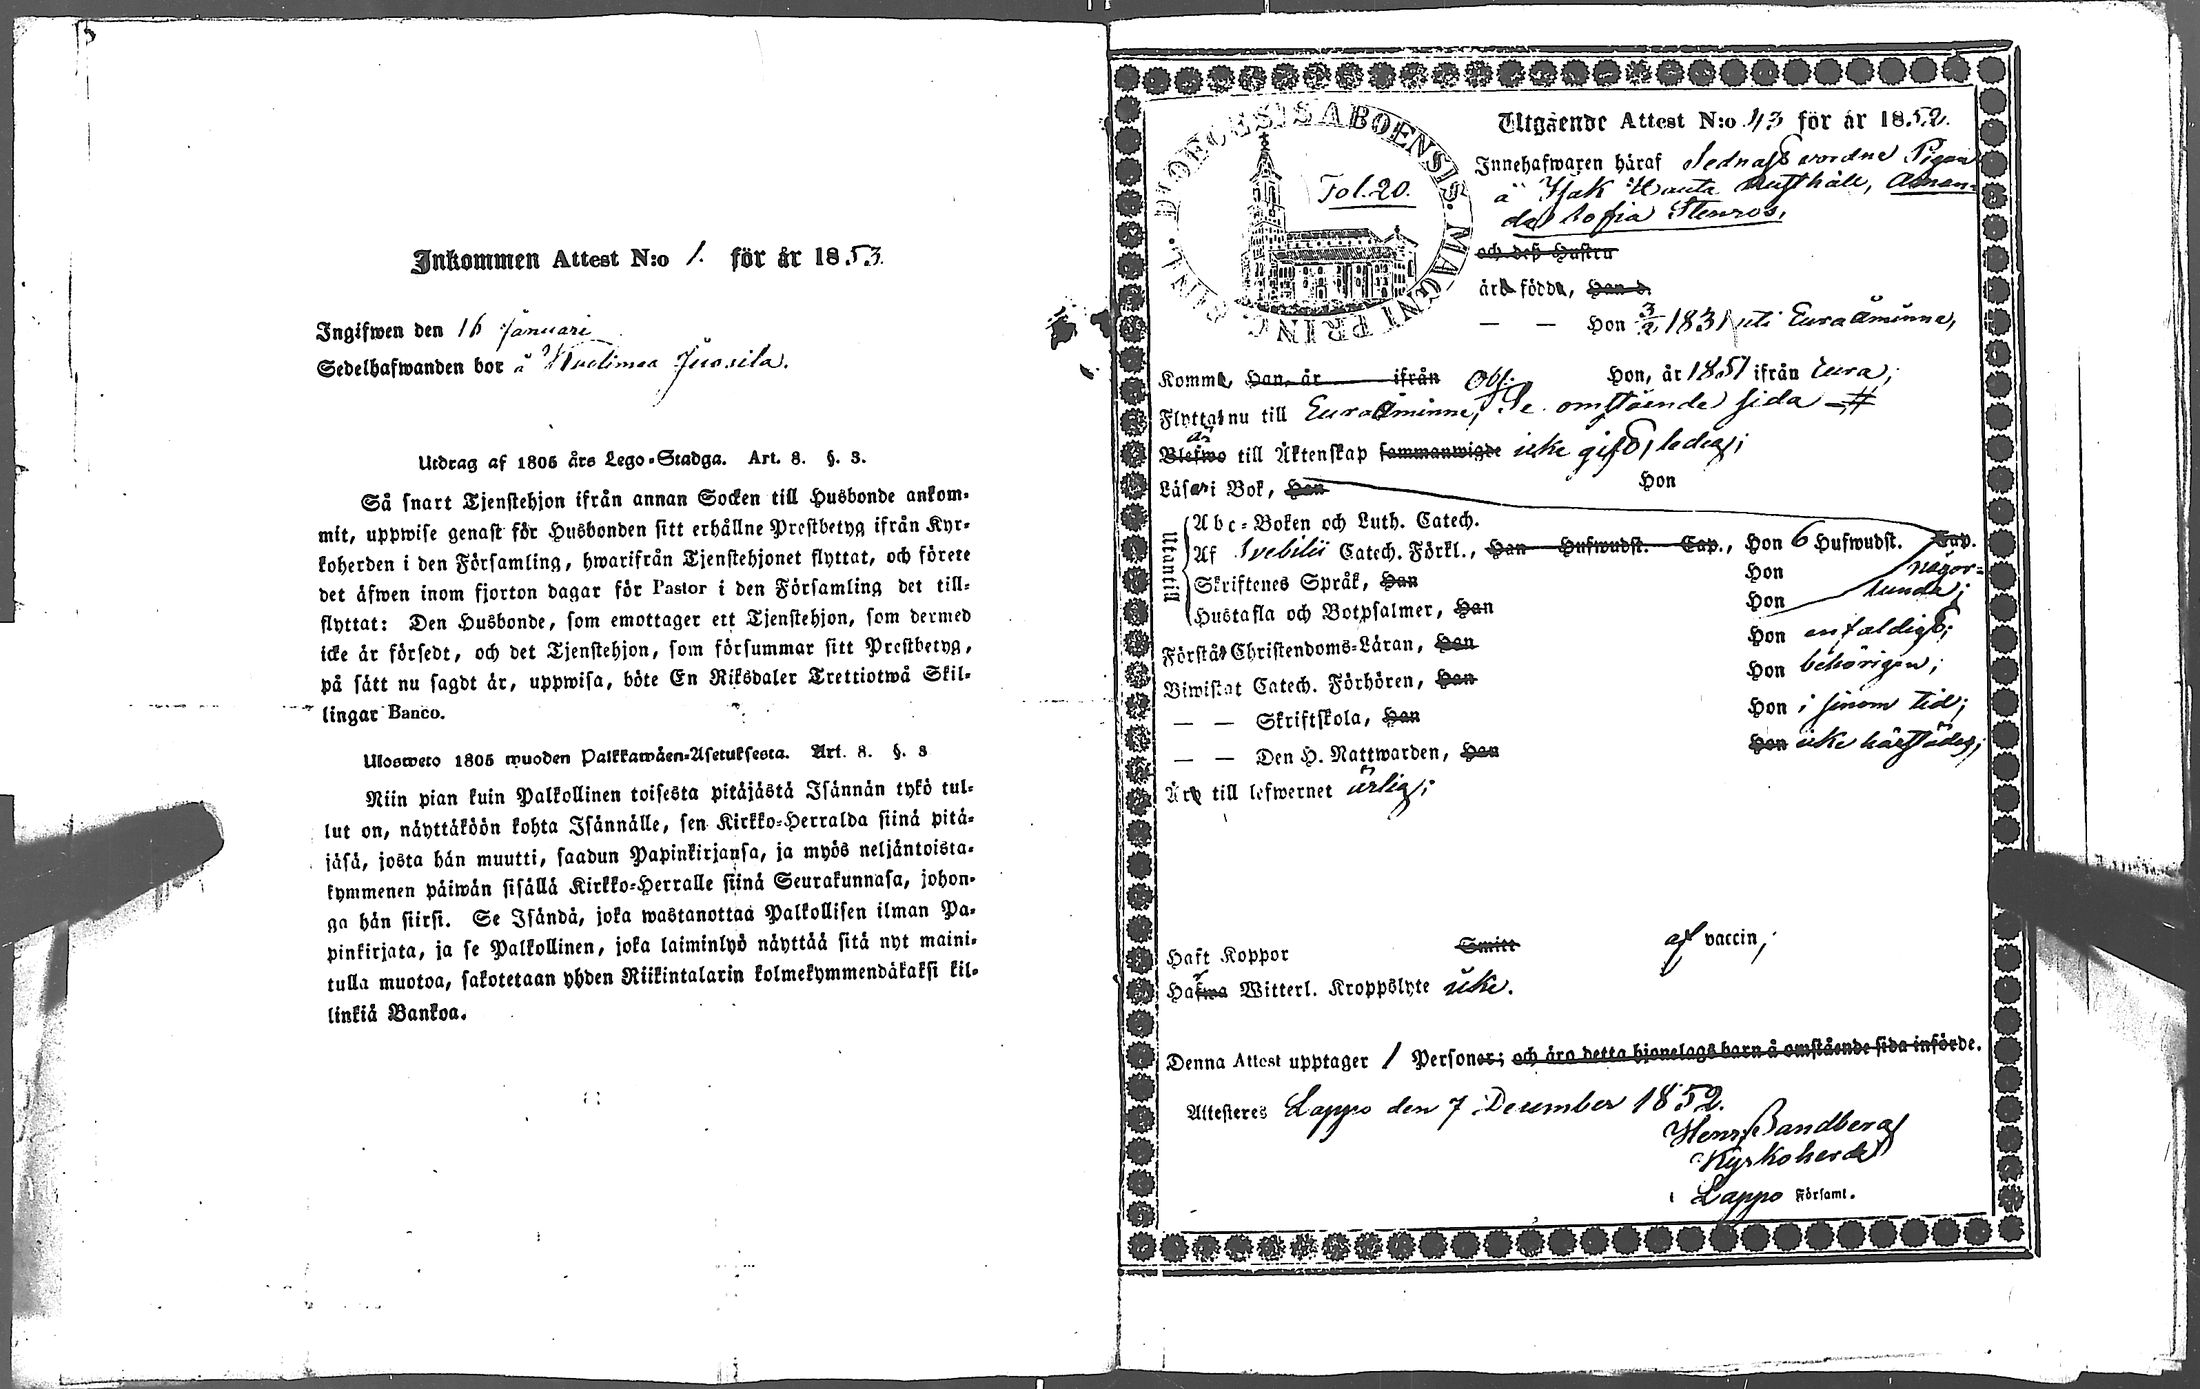 Inkommen Attest N:o 1. för år 1853.
Ingifwen den 16 Januari
Sedelhafwanden bor å Juosila.
Utdrag af 1805 års Lego-Stadga. Art. 8. §. 3.
Så snart Tjenstehjon ifrån annan Socken till Husbonde ankom-
mit, uppwise genast för Husbonden sitt erhållne Prestbetyg ifrån Kyr-
koherden i den Församling, hwarifrån Tjenstehjonet flyttat, och förete
det äfwen inom fjorton dagar för Pastor i den Församling det till-
flyttat: Den Husbonde, som emottager ett Tjenstehjon, som dermed
icke är försedt, och det Tjenstehjon, som försummar sitt Prestbetyg,
på sätt nu sagdt är, uppwisa, böte En Riksdaler Trettiotwå Skil-
lingar Banco.
Ulosweto 1805 wuoden Palkkawäen-Asetuksesta. Art. 8. §. 3
Niin pian kuin Palkollinen toisesta pitäjästä Isännän tykö tul-
lut on, näyttäköön kohta Isännälle, sen Kirkko-Herralda siinä pitä-
jäsä, josta hän muutti, saadun Papinkirjansa, ja myös neljäntoista-
kymmenen päiwän sisällä Kirkko-Herralle siinä Seurakunnasa, johon-
ga hän siirsi. Se Isändä, joka wastanottaa Palkollisen ilman Pa-
pinkirjata, ja se Palkollinen, joka laiminlyö näyttää sitä nyt maini-
tulla muotoa, sakotetaan yhden Riikintalarin kolmekymmendäkaksi kil-
linkiä Bankoa.
DIOECESIS ABOENSIS. MAGNI PRINC. FINL.
Fol. 20.
Utgående Attest N:o 43 för år 1852.
Innehafwaren häraf Pigan
å Isak rusthåll, Aman-
da Sofia Stenros,
och deß Hustru
äro födde, Han d.
— — Hon 3/2 1831 uti Euraåminne,
Komme, Han, år ifrån Obs: Hon, år 1851 ifrån Eura;
Flytta nu till Euraåminne, Se omstående sida #
är
Blefwo till Äktenskap sammanwigde icke gift, ledig;
Läsa i Bok, Han Hon
Utantill
Abc-Boken och Luth. Catech.
Af Svebilii Catech. Förkl., Han Hufwudst. Cap., Hon 6 Hufwudst. Cap.
Skriftenes Språk, Han Hon någor-
Hustafla och Botpsalmer, Han Hon lunda;
Förstå Christendoms-Läran, Han Hon enfaldigt;
Biwistat Catech. Förhören, Han Hon behörigen;
— — Skriftskola, Han Hon i sinom tid;
— — Den H. Nattwarden, Han Hon icke härstädes;
Äro till lefwernet ärlig;
Haft Koppor Smitt af vaccin;
Hafwa Witterl. Kroppslyte icke.
Denna Attest upptager 1 Personer; och äro detta hjonelags barn å omstående sida införde.
Attesteres Lappo den 7 December 1852.
Henr. Sandberg
Kyrkoherde
i Lappo Församl.